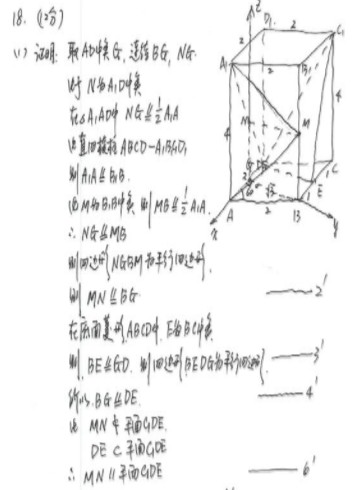 18. (12分)
(1) 证明: 取AD中点G, 连结BG, NG.
由于N为A₁D中点
在△A₁AD中 NG ∥= ½A₁A
由直四棱柱ABCD-A₁B₁C₁D₁
则A₁A ∥= B₁B.
由M为B₁B中点 则MB ∥= ½A₁A.
∴ NG ∥= MB
则四边形NGBM为平行四边形.
则 MN ∥= BG 2'
在底面菱形ABCD中, E为BC中点
则 BE ∥= GD. 则四边形BEDG为平行四边形. 3'
所以 BG ∥= DE. 4'
由 MN ⊄ 平面C₁DE.
DE ⊂ 平面C₁DE
∴ MN // 平面C₁DE 6'
z
D₁ 2 C₁
2
A₁ 2 B₁
4
N M
4 4
G D
C
60° √3 E
A 2 B
x y